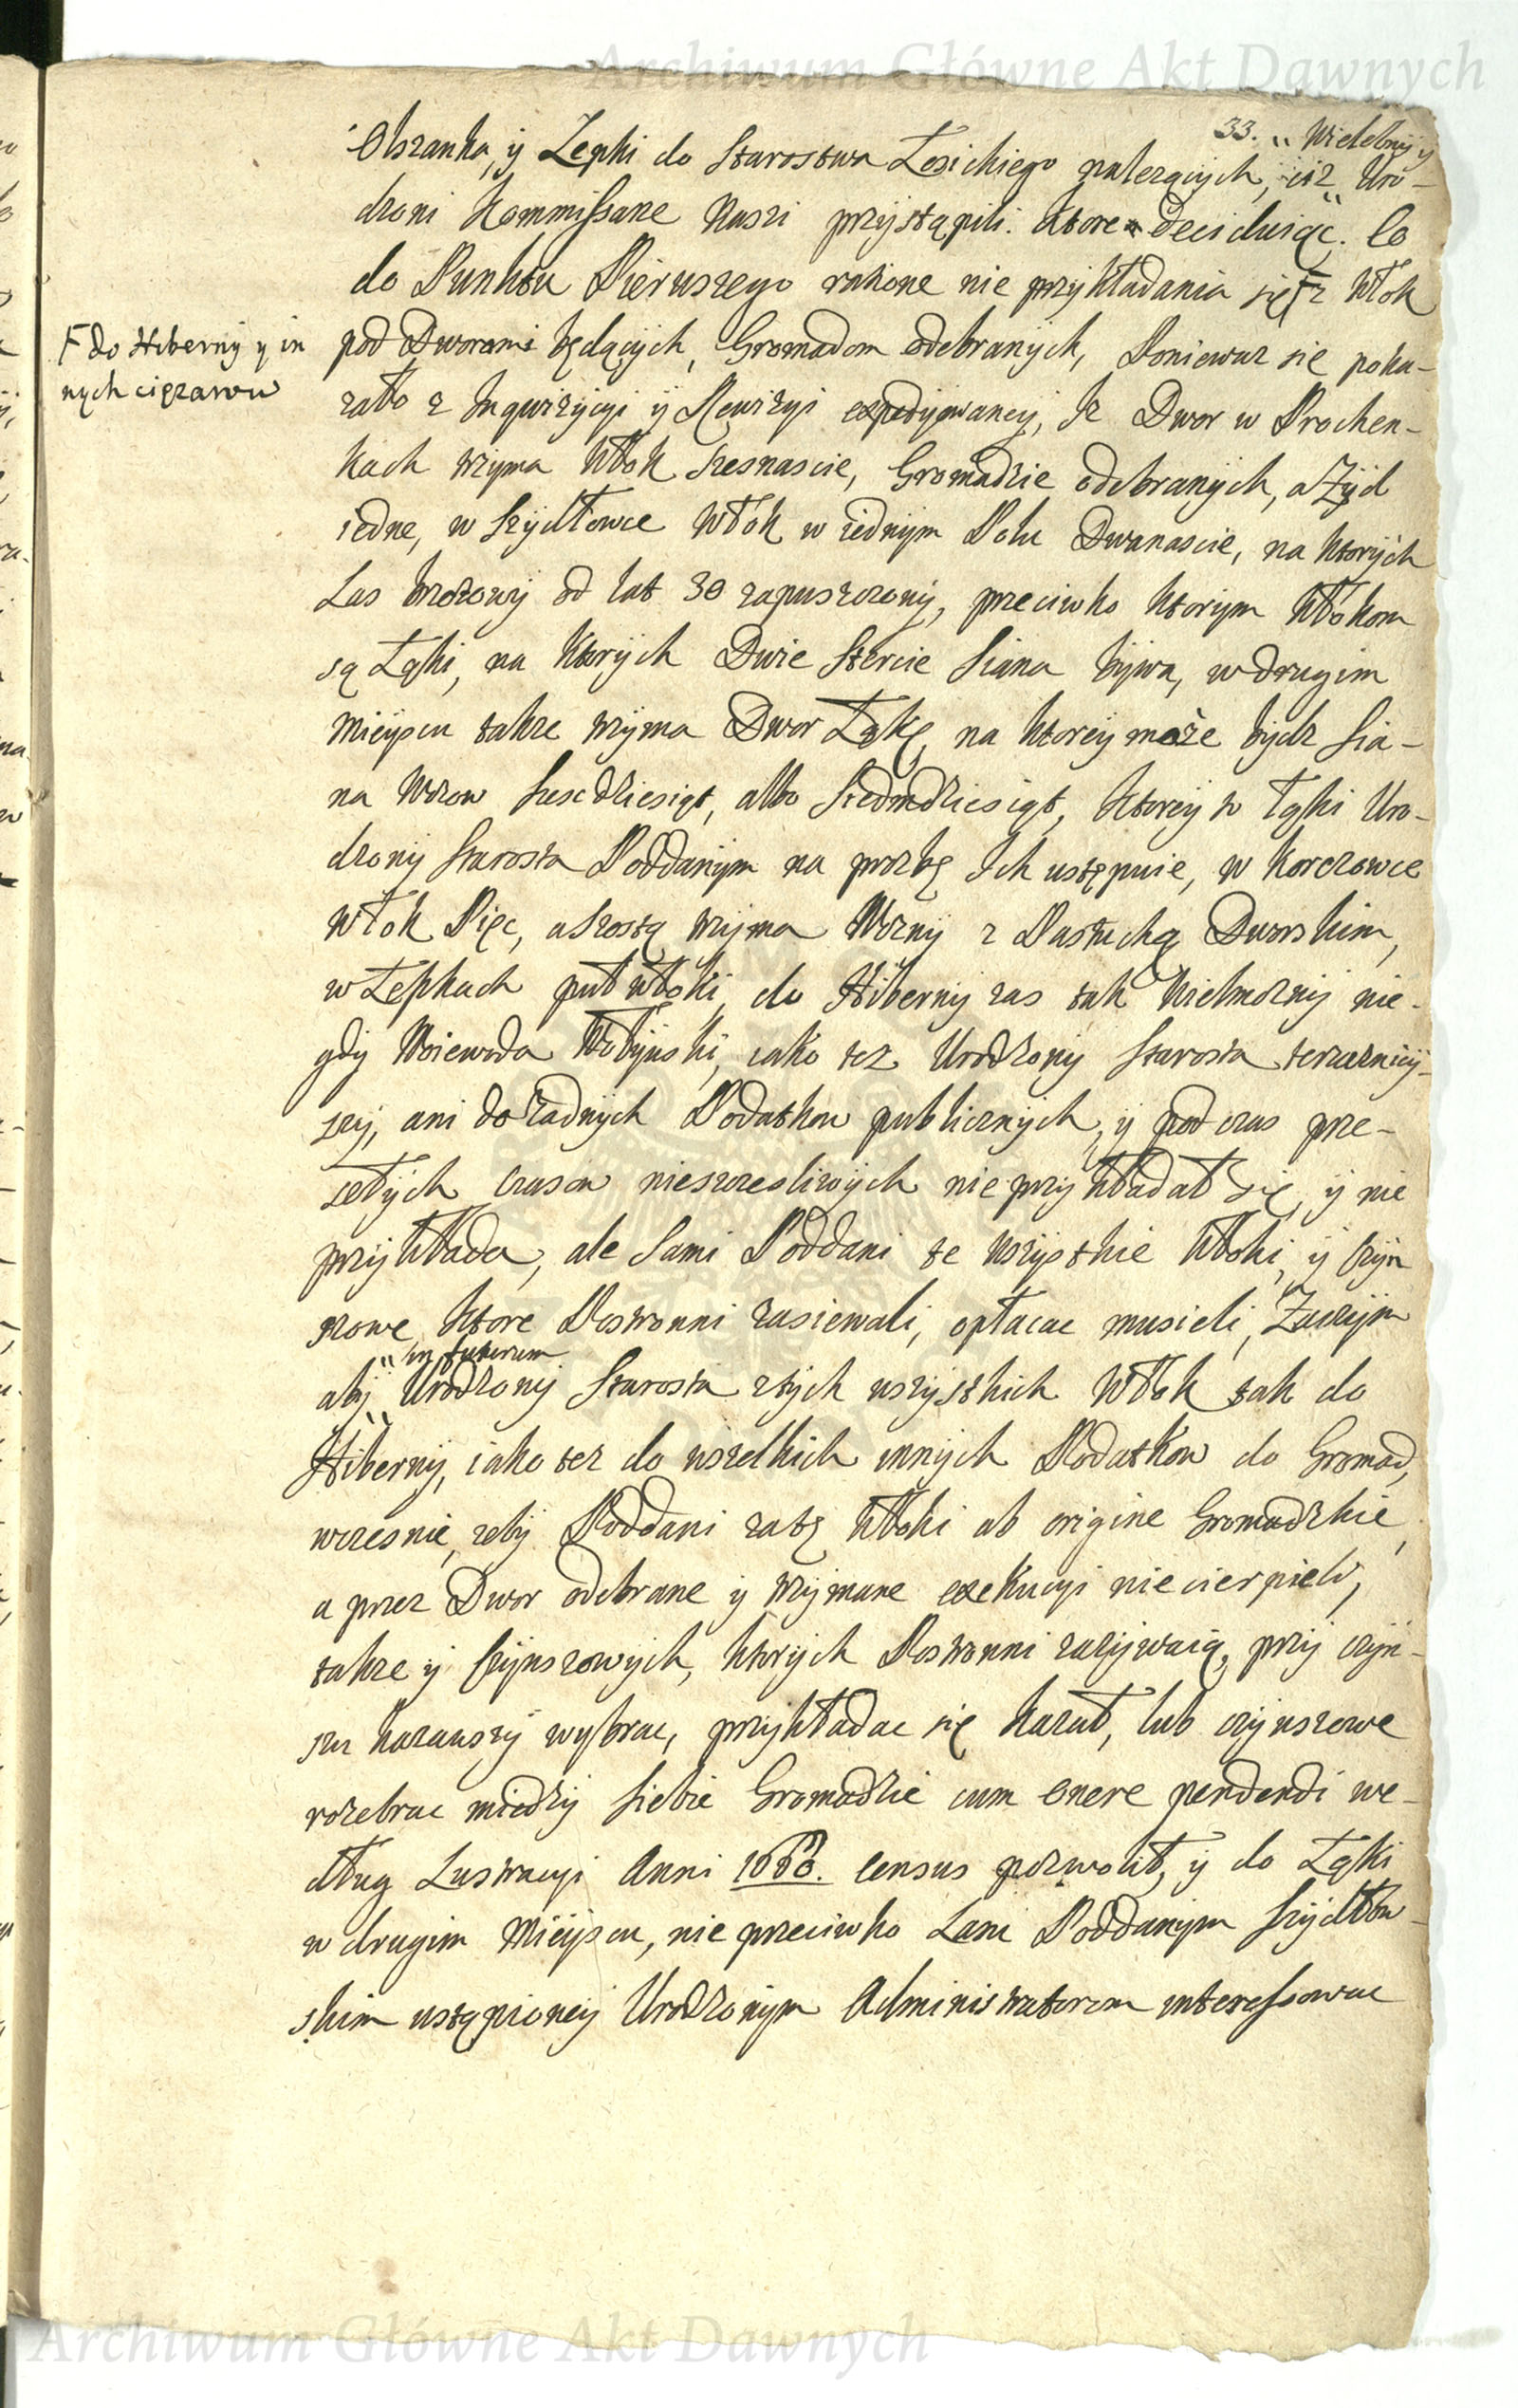 Archiwum Główne Akt Dawnych
33. Wielebny y
Olszanka, y Zepki do Starostwa Łosickiego należących, ciż Uro-
dzeni Kommissarze Nasi przystąpili. Ktore decidując. Co
do Punktu Pierwszego ratione nie przykładania się F z Włok
F do Hiberny y in
nych cięzarow
pod Dworami będących, Gromadom odebranych, Poniewaz się poka-
zało z Inquizycyi y Rewizyi expedyiowaney, Iz Dwor w Prochen-
kach trzyma Włok szesnascie, Gromadzie odebranych, a Zyd
iedne, w Szydłowce Włok w iednym Polu Dwanascie, na ktorych
Las brzozowy od lat 30 zapuszczony, przeciwko ktorym Włokom
są Łąki, na ktorych Dwie Stercie Siana bywa, w drugim
Mieyscu takze trzyma Dwor Łąkę, na ktorey może bydz Sia-
na Wozow Szescdziesiąt, albo Siedmdziesiąt, ktorey to Łąki Uro-
dzony Starosta Poddanym na prozbę Ich ustępuie, w Korczowce
Włok Pięc, a szostą trzyma Wozny z Pastuchą Dworskim,
w Łepkach puł włoki, do Hiberny zas tak Wielmozny nie-
gdy Woiewoda Wołynski, iako tez Urodzony Starosta teraznieÿ-
szy, ani do żadnych Podatkow publicznych, y pod czas prze-
szłych czasow nieszczesliwych nie przykładał się, y nie
przykłada, ale Sami Poddani te wszystkie Włoki, y Czyn
szowe, ktore Postronni zasiewali, opłacac musieli, Zaczym
in futurum
aby Urodzony Starosta z tych wszystkich Włok tak do
Hiberny, iako tez do wszelkich innych Podatkow do Gromad,
wczesnie, zeby Poddani za te Włoki ab origine Gromadzkie,
a przez Dwor odebrane y trzymane exekucyi nie cierpieli,
takze y Czynszowych, ktorych Postronni zazywaią, przy czyn-
szu kazawszy wybrac, przykładac się kazał, lub czynszowe
rozebrac miedzy siebie Gromadzie cum onere pendendi we-
dług Lustracyi Anni 1660. census pozwolił, y do Łąki
w drugim Mieyscu, nie przeciwko Lasu Poddanym Szydłow-
skim ustąpioney Urodzonym Administratorom interessowac
Archiwum Główne Akt Dawnych